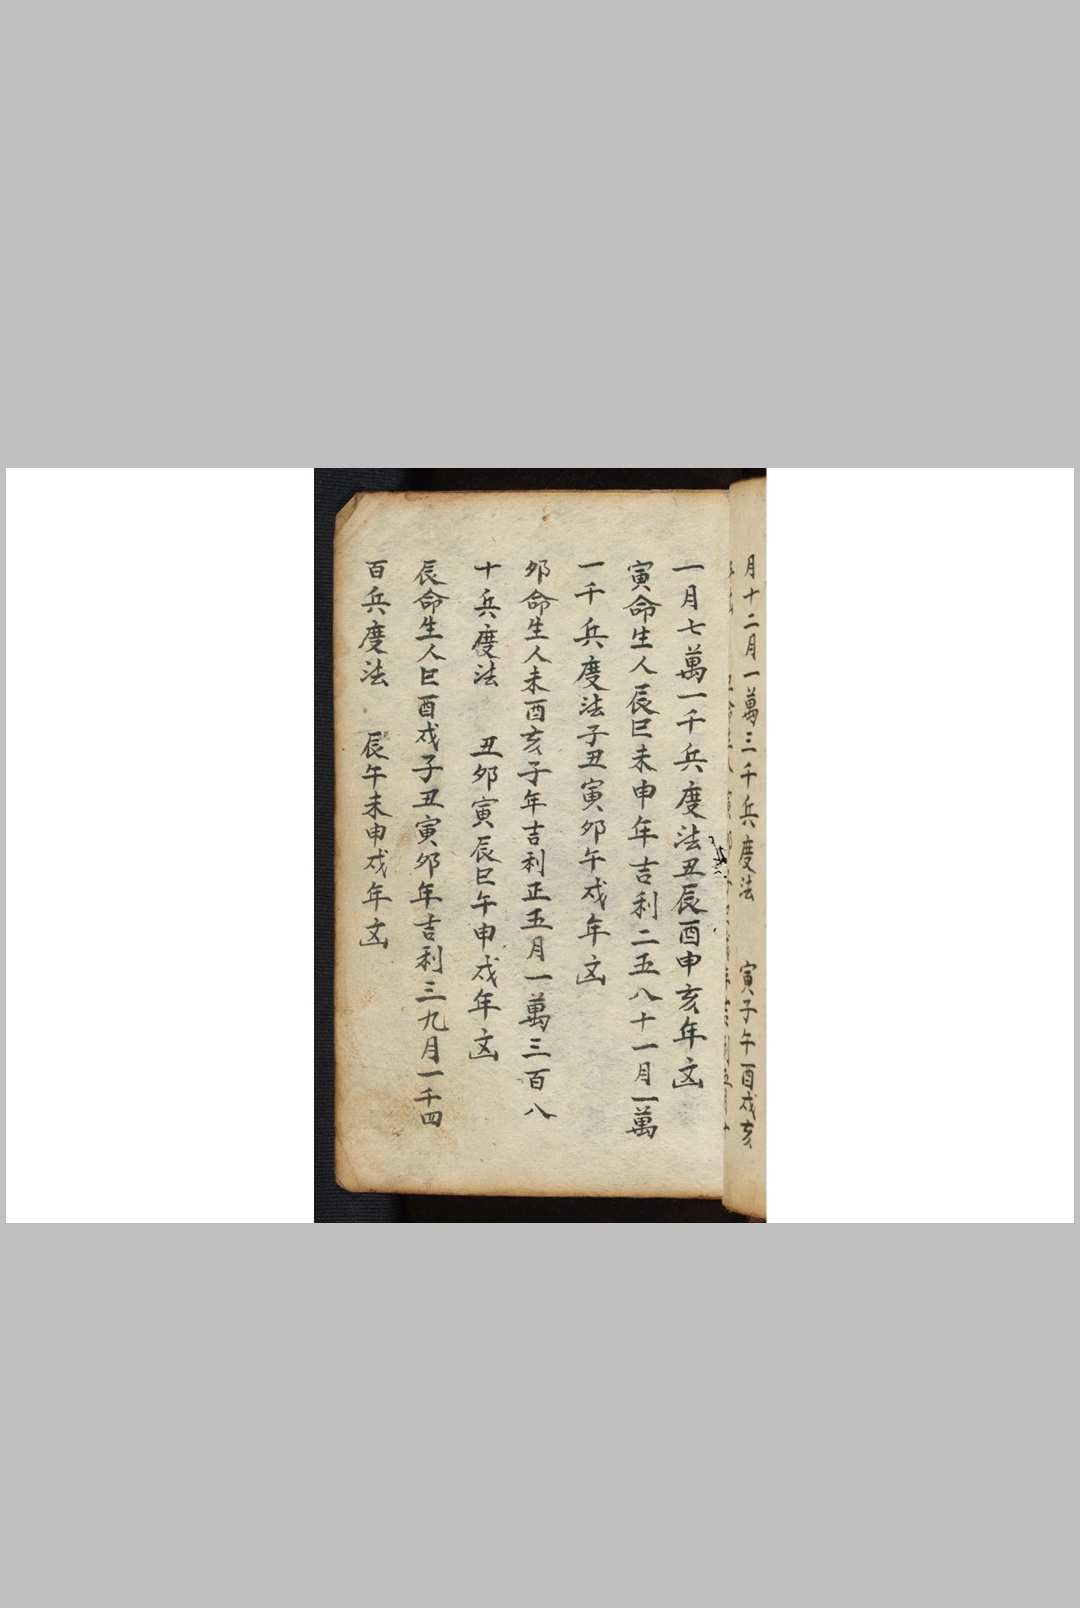 月十二月一萬三千兵度法 寅子午酉戌亥
一月七萬一千兵度法丑辰酉申亥年凶
寅命生人辰巳未申年吉利二五八十一月一萬
一千兵度法子丑寅卯午戌年凶
卯命生人未酉亥子年吉利正五月一萬三百八
十兵度法 丑卯寅辰巳午申戌年凶
辰命生人巳酉戌子丑寅卯年吉利三九月一千四
百兵度法 辰午未申戌年凶